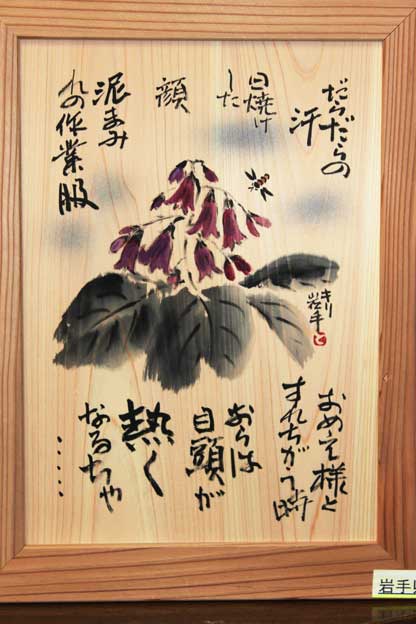 だらだらの
汗
日焼け
した
顔
泥まみ
れの作業服
キリ
岩手
おめえ様と
すれちがう時
おらは
目頭が
熱く
なるちゃ
・・・・・
岩手